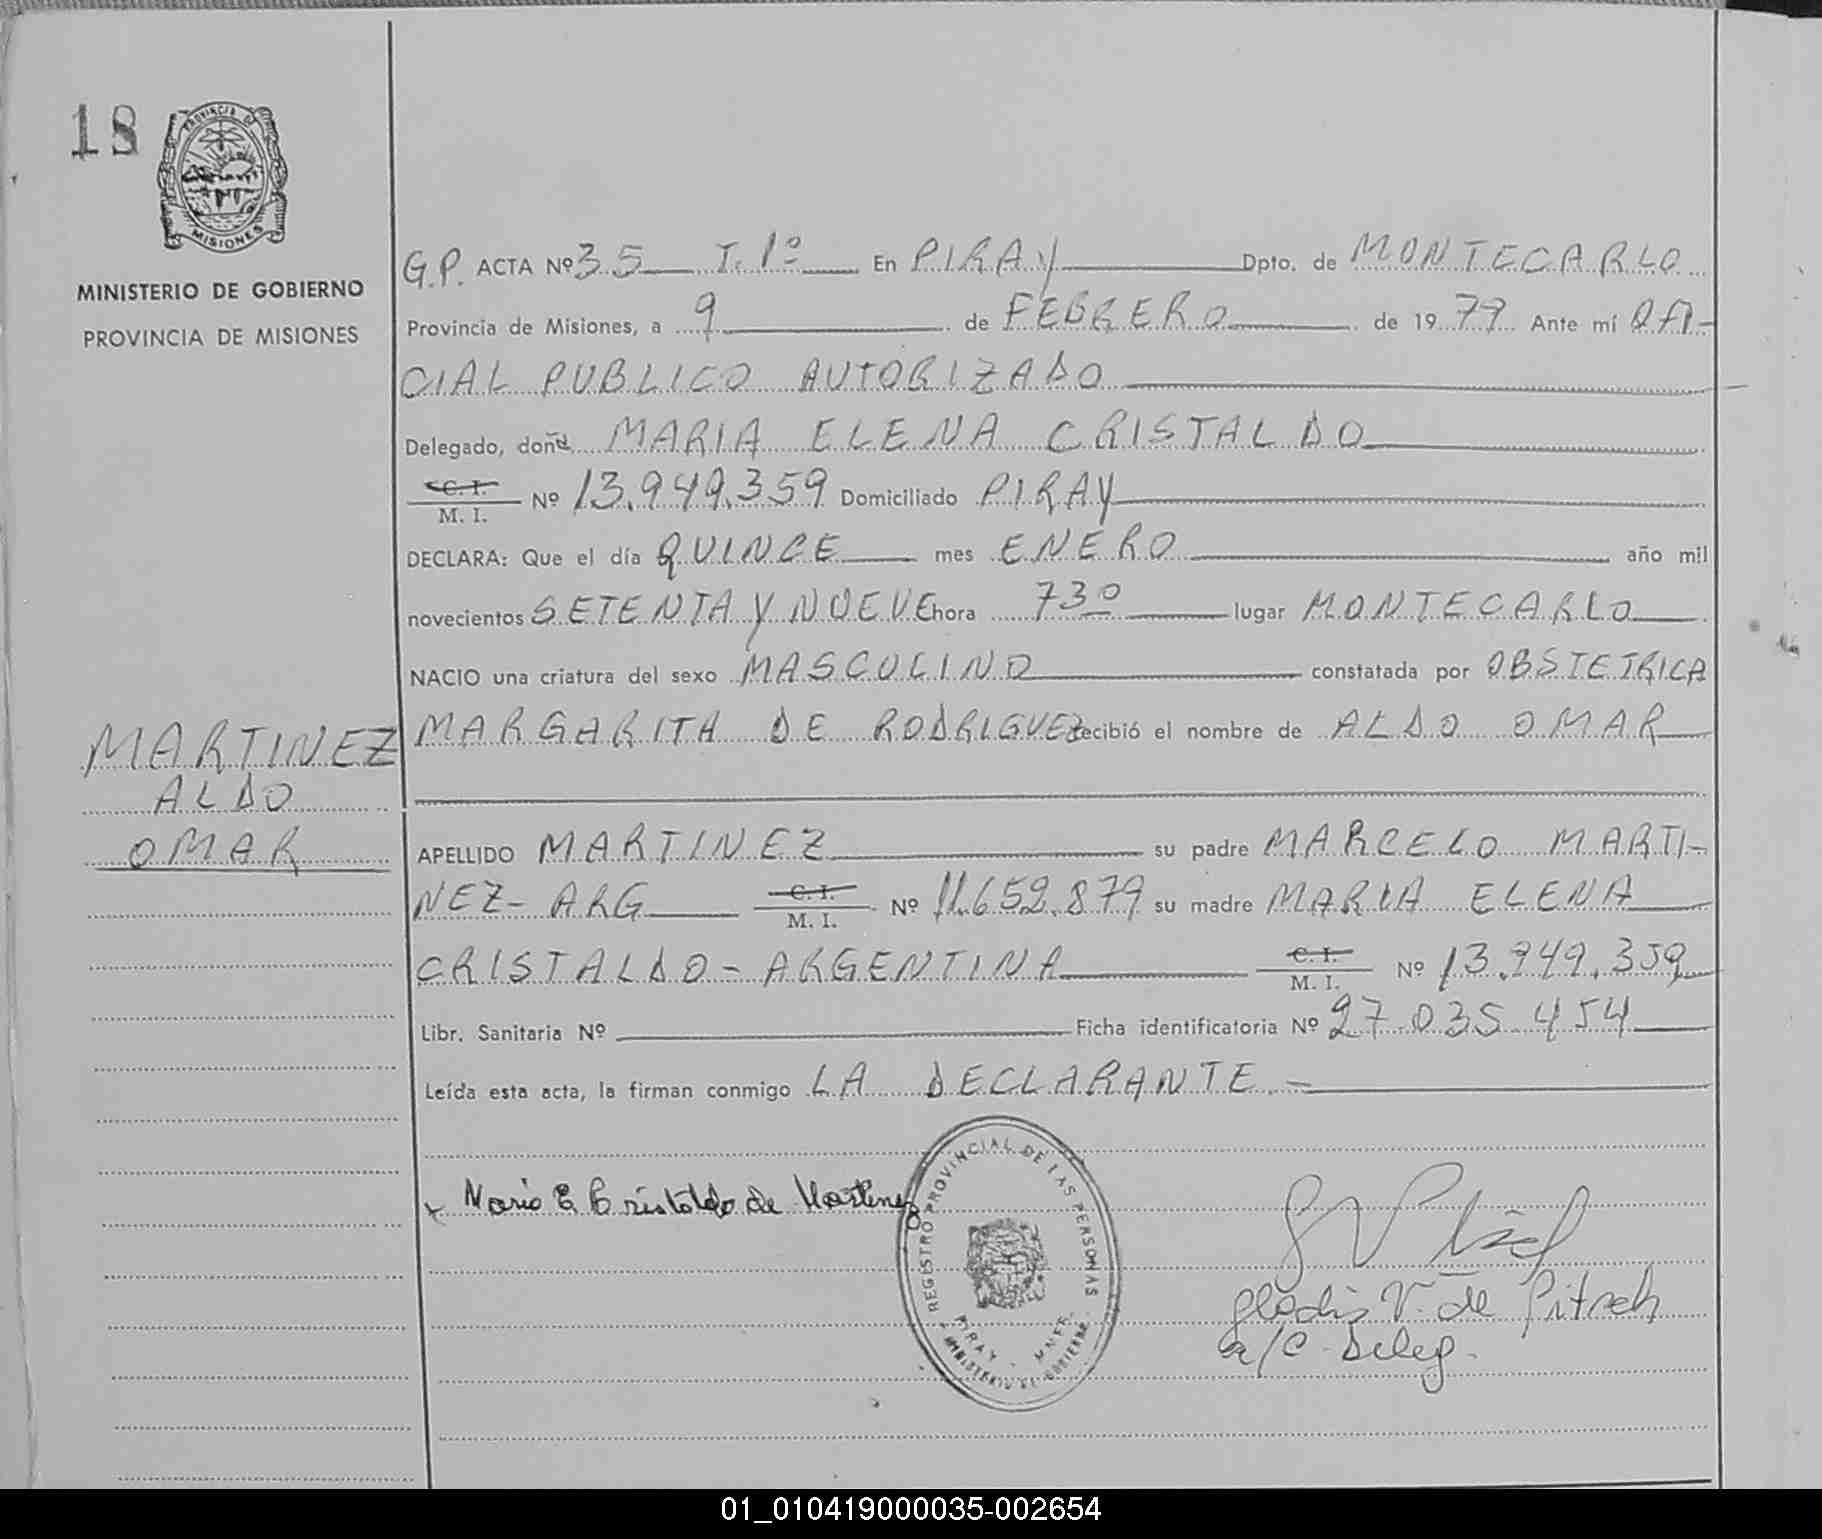 18
PROVINCIA DE
MISIONES
MINISTERIO DE GOBIERNO
PROVINCIA DE MISIONES
G.P. ACTA Nº 35 T. 1º En PIRAY Dpto. de MONTECARLO
Provincia de Misiones, a 9 de FEBRERO de 1979 Ante mí OFI-
CIAL PUBLICO AUTORIZADO
Delegado, doña MARIA ELENA CRISTALDO
C. I.
M. I. Nº 13.949.359 Domiciliado PIRAY
DECLARA: Que el día QUINCE mes ENERO año mil
novecientos SETENTA Y NUEVE hora 730 lugar MONTECARLO
NACIO una criatura del sexo MASCULINO constatada por OBSTETRICA
MARGARITA DE RODRIGUEZ recibió el nombre de ALDO OMAR
MARTINEZ
ALDO
OMAR
APELLIDO MARTINEZ su padre MARCELO MARTI-
NEZ - ARG C. I.
M. I. Nº 11.652.879 su madre MARIA ELENA
CRISTALDO - ARGENTINA C. I.
M. I. Nº 13.949.359
Libr. Sanitaria Nº Ficha identificatoria Nº 27.035.454
Leída esta acta, la firman conmigo LA DECLARANTE.-
x Maria E Cristaldo de Martinez
REGISTRO PROVINCIAL DE LAS PERSONAS
PIRAY - MNES.
MINISTERIO DE GOBIERNO
Gladis V. de Pitsch
a/C Deleg.
01_010419000035-002654